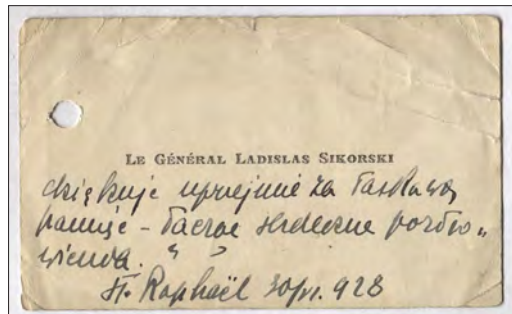 LE GÉNÉRAL LADISLAS SIKORSKI
dziękuje uprzejmie za łaskawą
pamięć - łącząc serdeczne pozdro„
wienia.
St. Raphaël 30/VI. 928